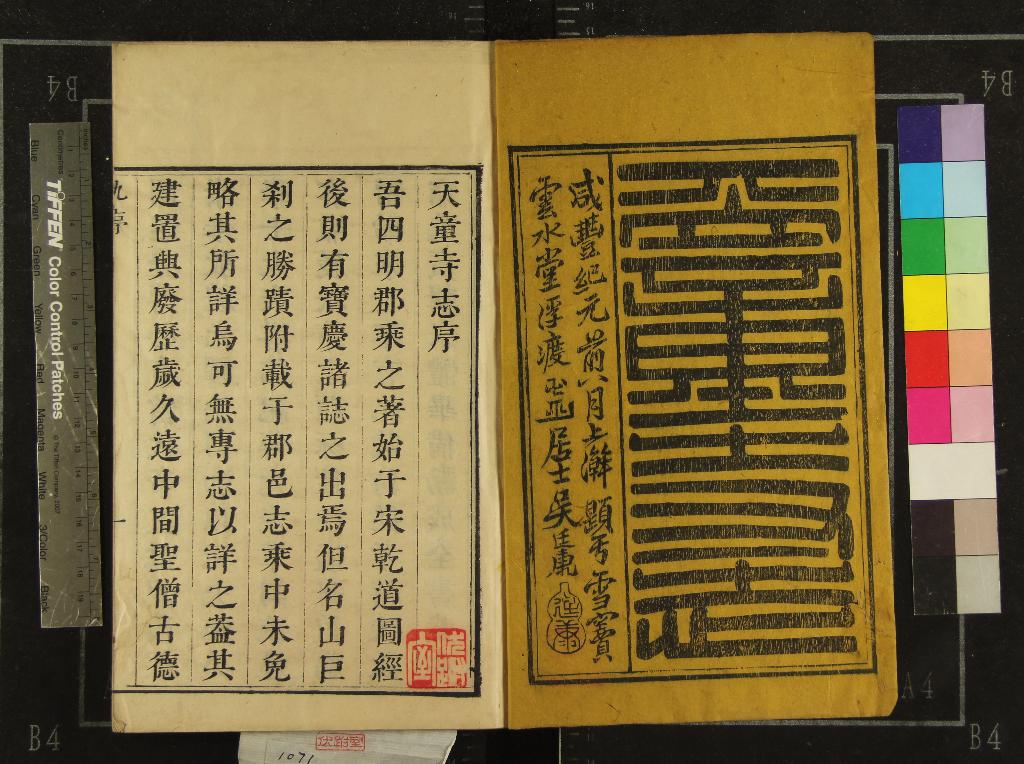 咸豐紀元前八月上澣顯丐雪竇
雲水堂浮渡
居士吳廷康
天童寺志序
吾四明郡乘之著始于宋乾道圖經
後則有寶慶諸誌之出焉但名山巨
刹之勝蹟附載于郡邑志乘中未免
略其所詳烏可無專志以詳之葢其
建置興廢歷歲久遠中間聖僧古德
序
一
伏跗室
伏跗室
1071
B4
B4
B4
B4
A4
TIFFEN Color Control Patches
© The Tiffen Company, 2007
Centimetres
Inches
Blue
Cyan
Green
Yellow
Red
Magenta
White
3/Color
Black